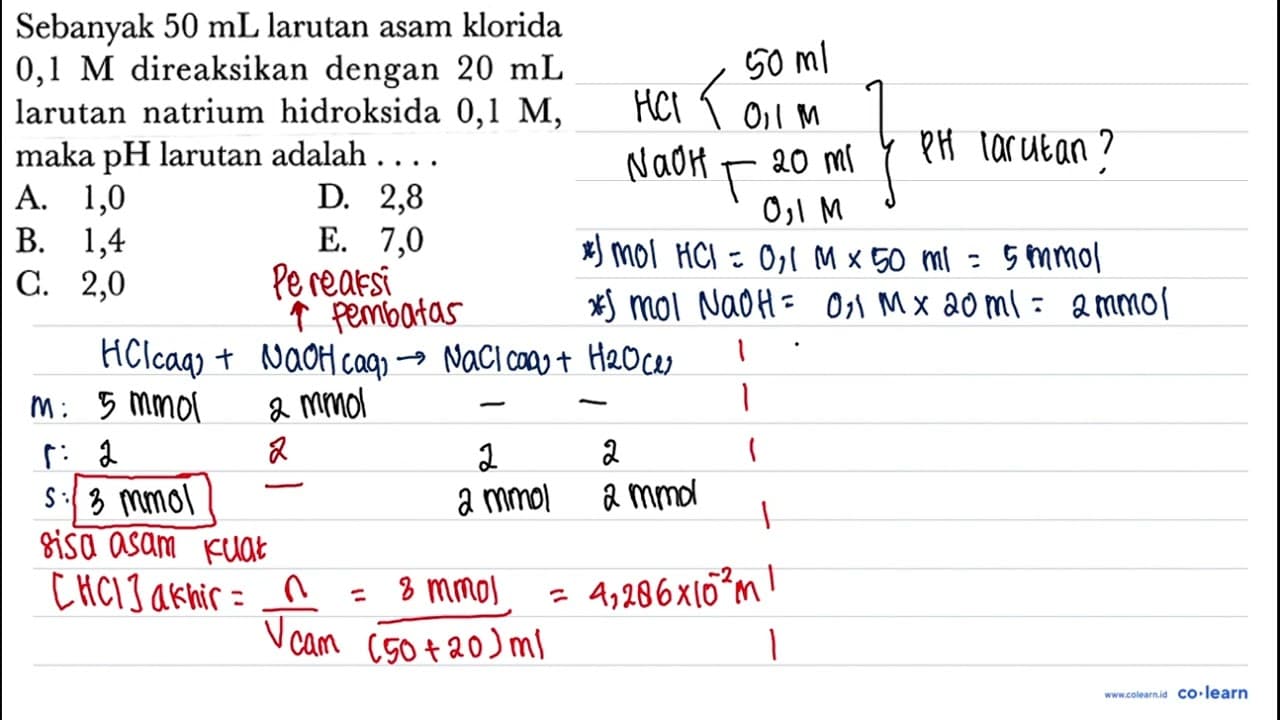 Sebanyak 50 mL larutan asam klorida
0,1 M direaksikan dengan 20 mL
larutan natrium hidroksida 0,1 M,
maka pH larutan adalah . . . .
A. 1,0 D. 2,8
B. 1,4 E. 7,0
C. 2,0
HCl 50 ml
0,1 M
NaOH 20 ml
0,1 M
PH larutan?
*) mol HCl = 0,1 M x 50 ml = 5 mmol
*) mol NaOH = 0,1 M x 20 ml = 2 mmol
Pereaksi
↑ pembatas
HCl(aq) + NaOH(aq) → NaCl(aq) + H2O(l)
m: 5 mmol 2 mmol — —
r: 2 2 2 2
s: 3 mmol — 2 mmol 2 mmol
sisa asam kuat
[HCl] akhir = n / V cam = 3 mmol / (50 + 20) ml = 4,286 x 10⁻² M
www.colearn.id co·learn